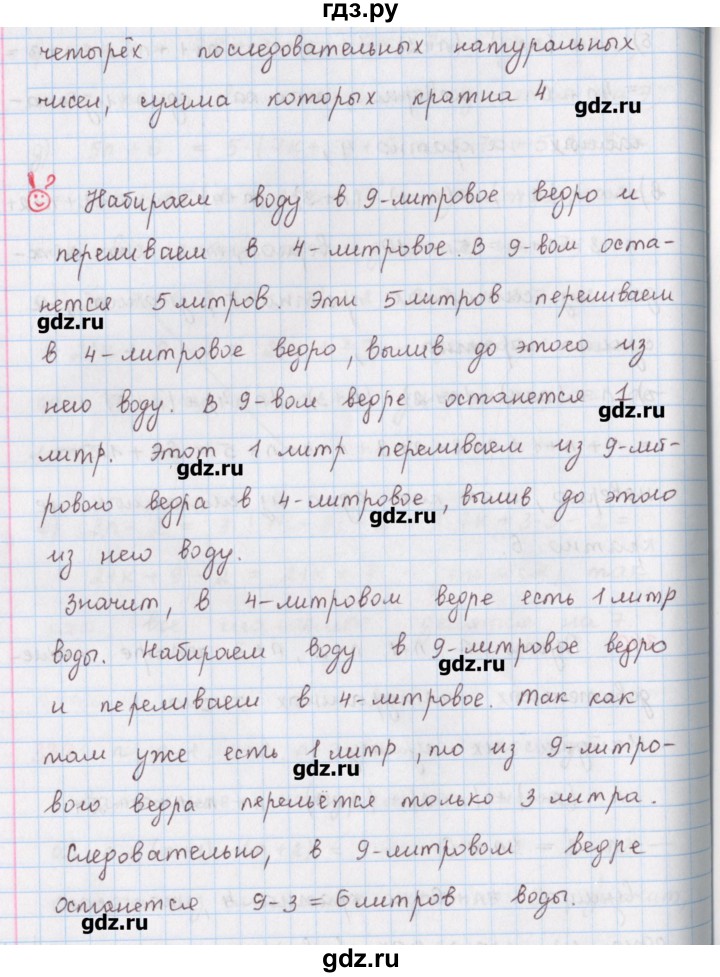 гдз.ру
четырёх последовательных натуральных
чисел, сумма которых кратна 4
gdz.ru
!?
Набираем воду в 9-литровое ведро и
переливаем в 4-литровое. В 9-вом оста-
нется 5 литров. Эти 5 литров переливаем
gdz.ru
в 4-литровое ведро, вылив до этого из
него воду. В 9-вом ведре останется 1
gdz.ru
литр. Этот 1 литр переливаем из 9-лит-
gdz.ru
рового ведра в 4-литровое, вылив до этого
gdz.ru
из него воду.
Значит, в 4-литровом ведре есть 1 литр
воды. Набираем воду в 9-литровое ведро
gdz.ru
и переливаем в 4-литровое. Так как
там уже есть 1 литр, то из 9-литро-
gdz.ru
вого ведра перельётся только 3 литра.
Следовательно, в 9-литровом ведре
останется 9-3=6 литров воды.
gdz.ru
gdz.ru